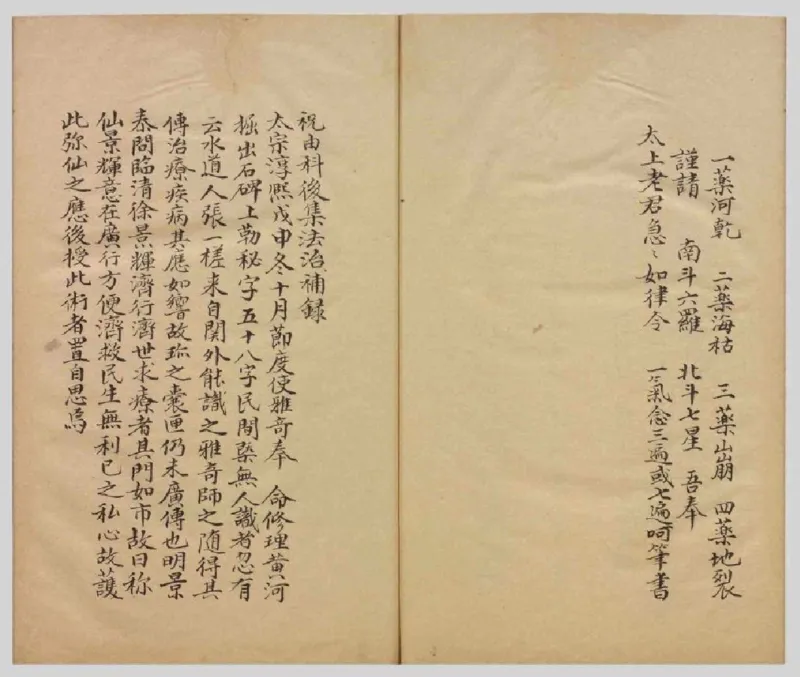 一藥河乾 二藥海枯 三藥山崩 四藥地裂
謹請 南斗六羅 北斗七星 吾奉
太上老君急〻如律令 一氣念三遍或七遍呵筆書
祝由科後集法治補録
太宗淳熙戊申冬十月節度使雅奇奉 命修理黄河
掘出石碑上勒秘字五十八字民間槩無人識者忽有
云水道人張一槎来自関外能識之雅奇師之随得其
傳治療疾病其應如響故珎之囊匣仍未廣傳也明景
泰間臨清徐景輝濟行濟世求療者其門如市故曰称
仙景輝意在廣行方便濟救民生無利已之私心故護
此弥仙之應後授此術者置自思焉